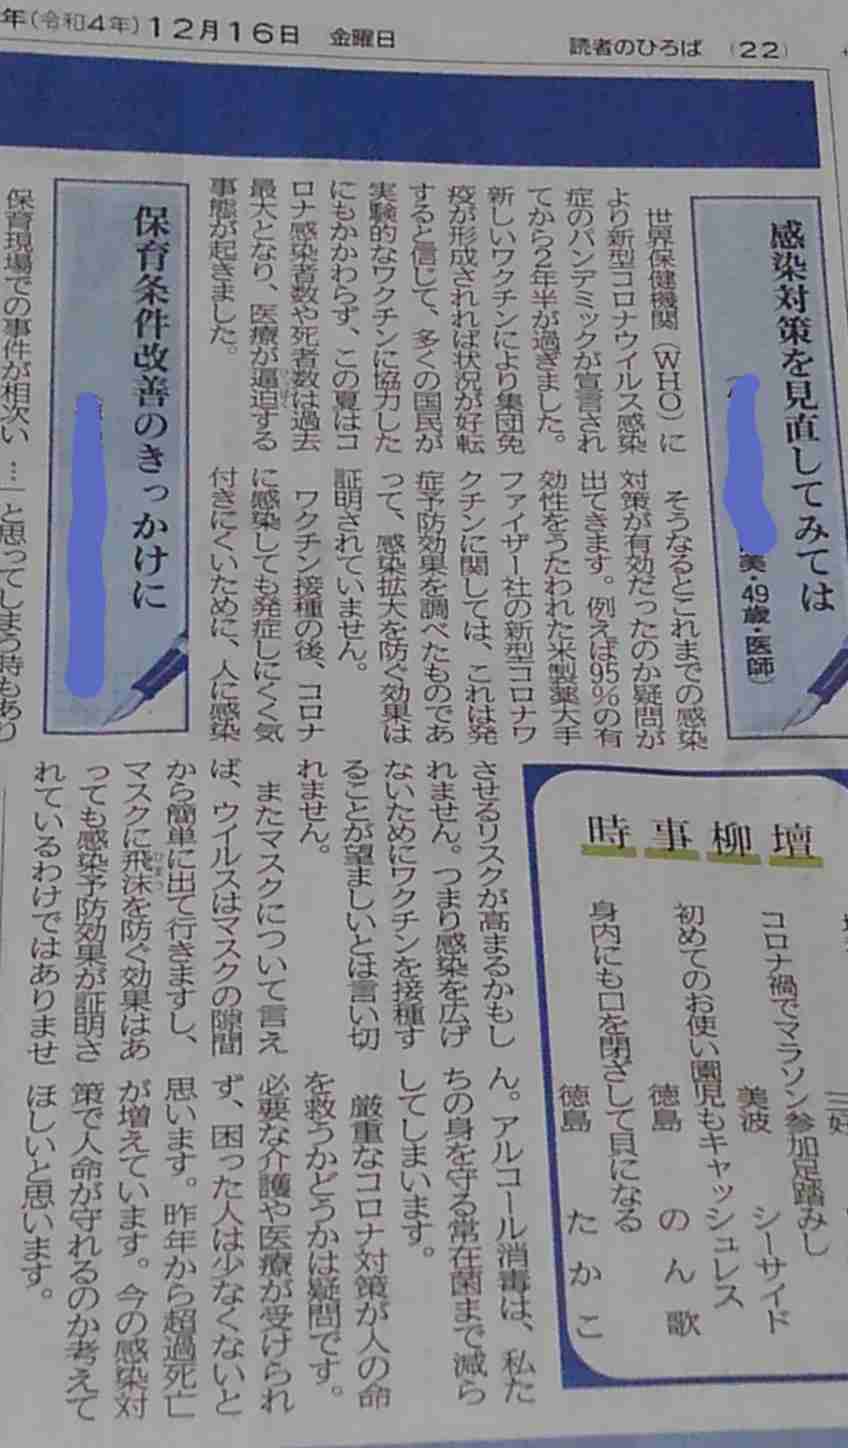 年(令和4年)12月16日 金曜日
読者のひろば (22)
感染対策を見直してみては
美・49歳・医師)
世界保健機関(WHO)に
より新型コロナウイルス感染
症のパンデミックが宣言され
てから2年半が過ぎました。
新しいワクチンにより集団免
疫が形成されれば状況が好転
すると信じて、多くの国民が
実験的なワクチンに協力した
にもかかわらず、この夏はコ
ロナ感染者数や死者数は過去
最大となり、医療が逼迫する
事態が起きました。
そうなるとこれまでの感染
対策が有効だったのか疑問が
出てきます。例えば95%の有
効性をうたわれた米製薬大手
ファイザー社の新型コロナワ
クチンに関しては、これは発
症予防効果を調べたものであ
って、感染拡大を防ぐ効果は
証明されていません。
ワクチン接種の後、コロナ
に感染しても発症しにくく気
付きにくいために、人に感染
させるリスクが高まるかもし
れません。つまり感染を広げ
ないためにワクチンを接種す
ることが望ましいとは言い切
れません。
またマスクについて言え
ば、ウイルスはマスクの隙間
から簡単に出て行きますし、
マスクに飛沫を防ぐ効果はあ
っても感染予防効果が証明さ
れているわけではありませ
ん。アルコール消毒は、私た
ちの身を守る常在菌まで減ら
してしまいます。
厳重なコロナ対策が人の命
を救うかどうかは疑問です。
必要な介護や医療が受けられ
ず、困った人は少なくないと
思います。昨年から超過死亡
が増えています。今の感染対
策で人命が守れるのか考えて
ほしいと思います。
保育条件改善のきっかけに
保育現場での事件が相次い
…」と思ってしまう時もあり
時事柳壇
三好
コロナ禍でマラソン参加足踏みし
美波 シーサイド
初めてのお使い園児もキャッシュレス
徳島 のん歌
身内にも口を閉ざして貝になる
徳島 たかこ